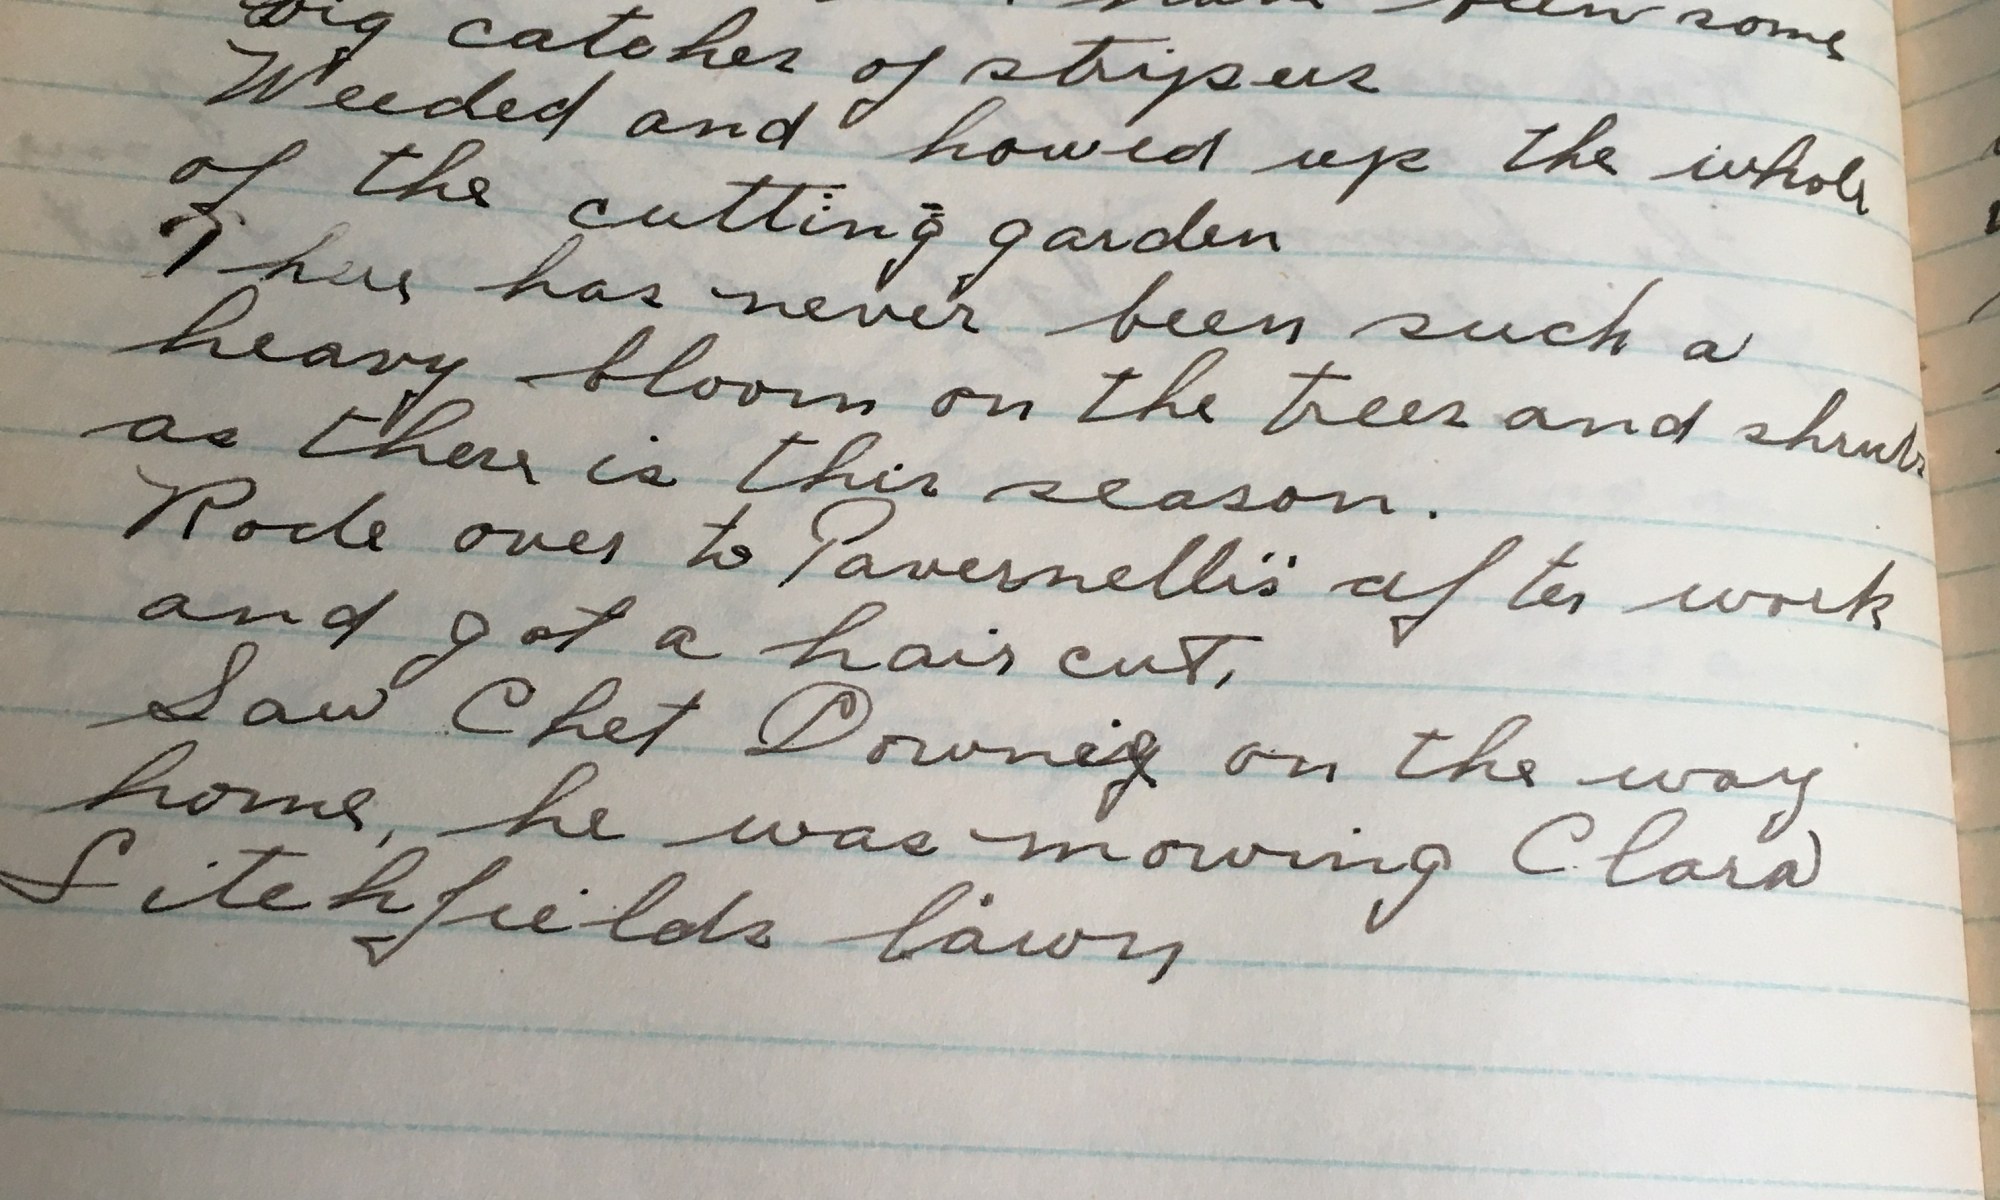 have been some
big catches of stripers
Weeded and howed up the whole
of the cutting garden
There has never been such a
heavy bloom on the trees and shrubs
as there is this season.
Rode over to Pavernelli's after work
and got a hair cut,
Saw Chet Downie on the way
home, he was mowing Clara
Litchfields lawn